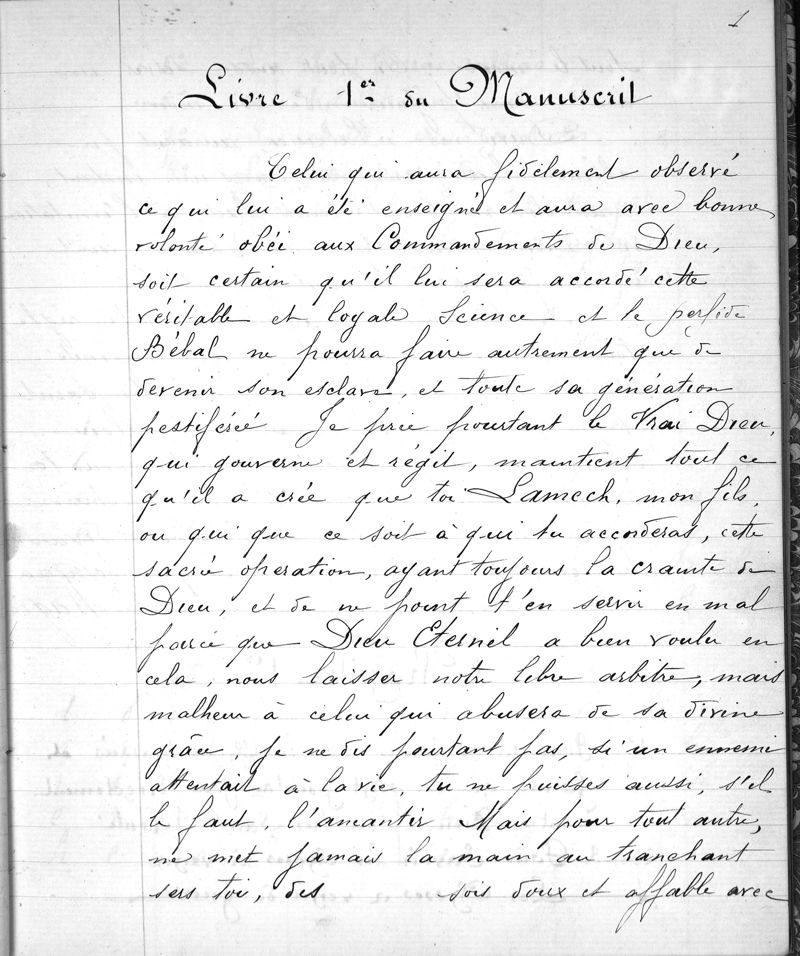 1
Livre 1er du Manuscrit
Celui qui aura fidèlement observé
ce qui lui a été enseigné et aura avec bonne
volonté obéi aux Commandements de Dieu,
soit certain qu'il lui sera accordé cette
véritable et loyale Science et le perfide
Bébal ne pourra faire autrement que de
devenir son esclave, et toute sa génération
pestiférée Je prie pourtant le Vrai Dieu,
qui gouverne et régit, maintient tout ce
qu'il a crée que toi Lamech, mon fils,
ou qui que ce soit à qui tu accorderas, cette
sacrée operation, ayant toujours la crainte de
Dieu, et de ne point t'en servir en mal
parce que Dieu Eternel a bien voulu en
cela, nous laisser notre libre arbitre, mais
malheur à celui qui abusera de sa divine
grâce, Je ne dis pourtant pas, si un ennemi
attentait à la vie, tu ne puisses aussi, s'il
le faut, l'anéantir Mais pour tout autre,
ne met jamais la main au tranchant
sers toi, des sois doux et affable avec